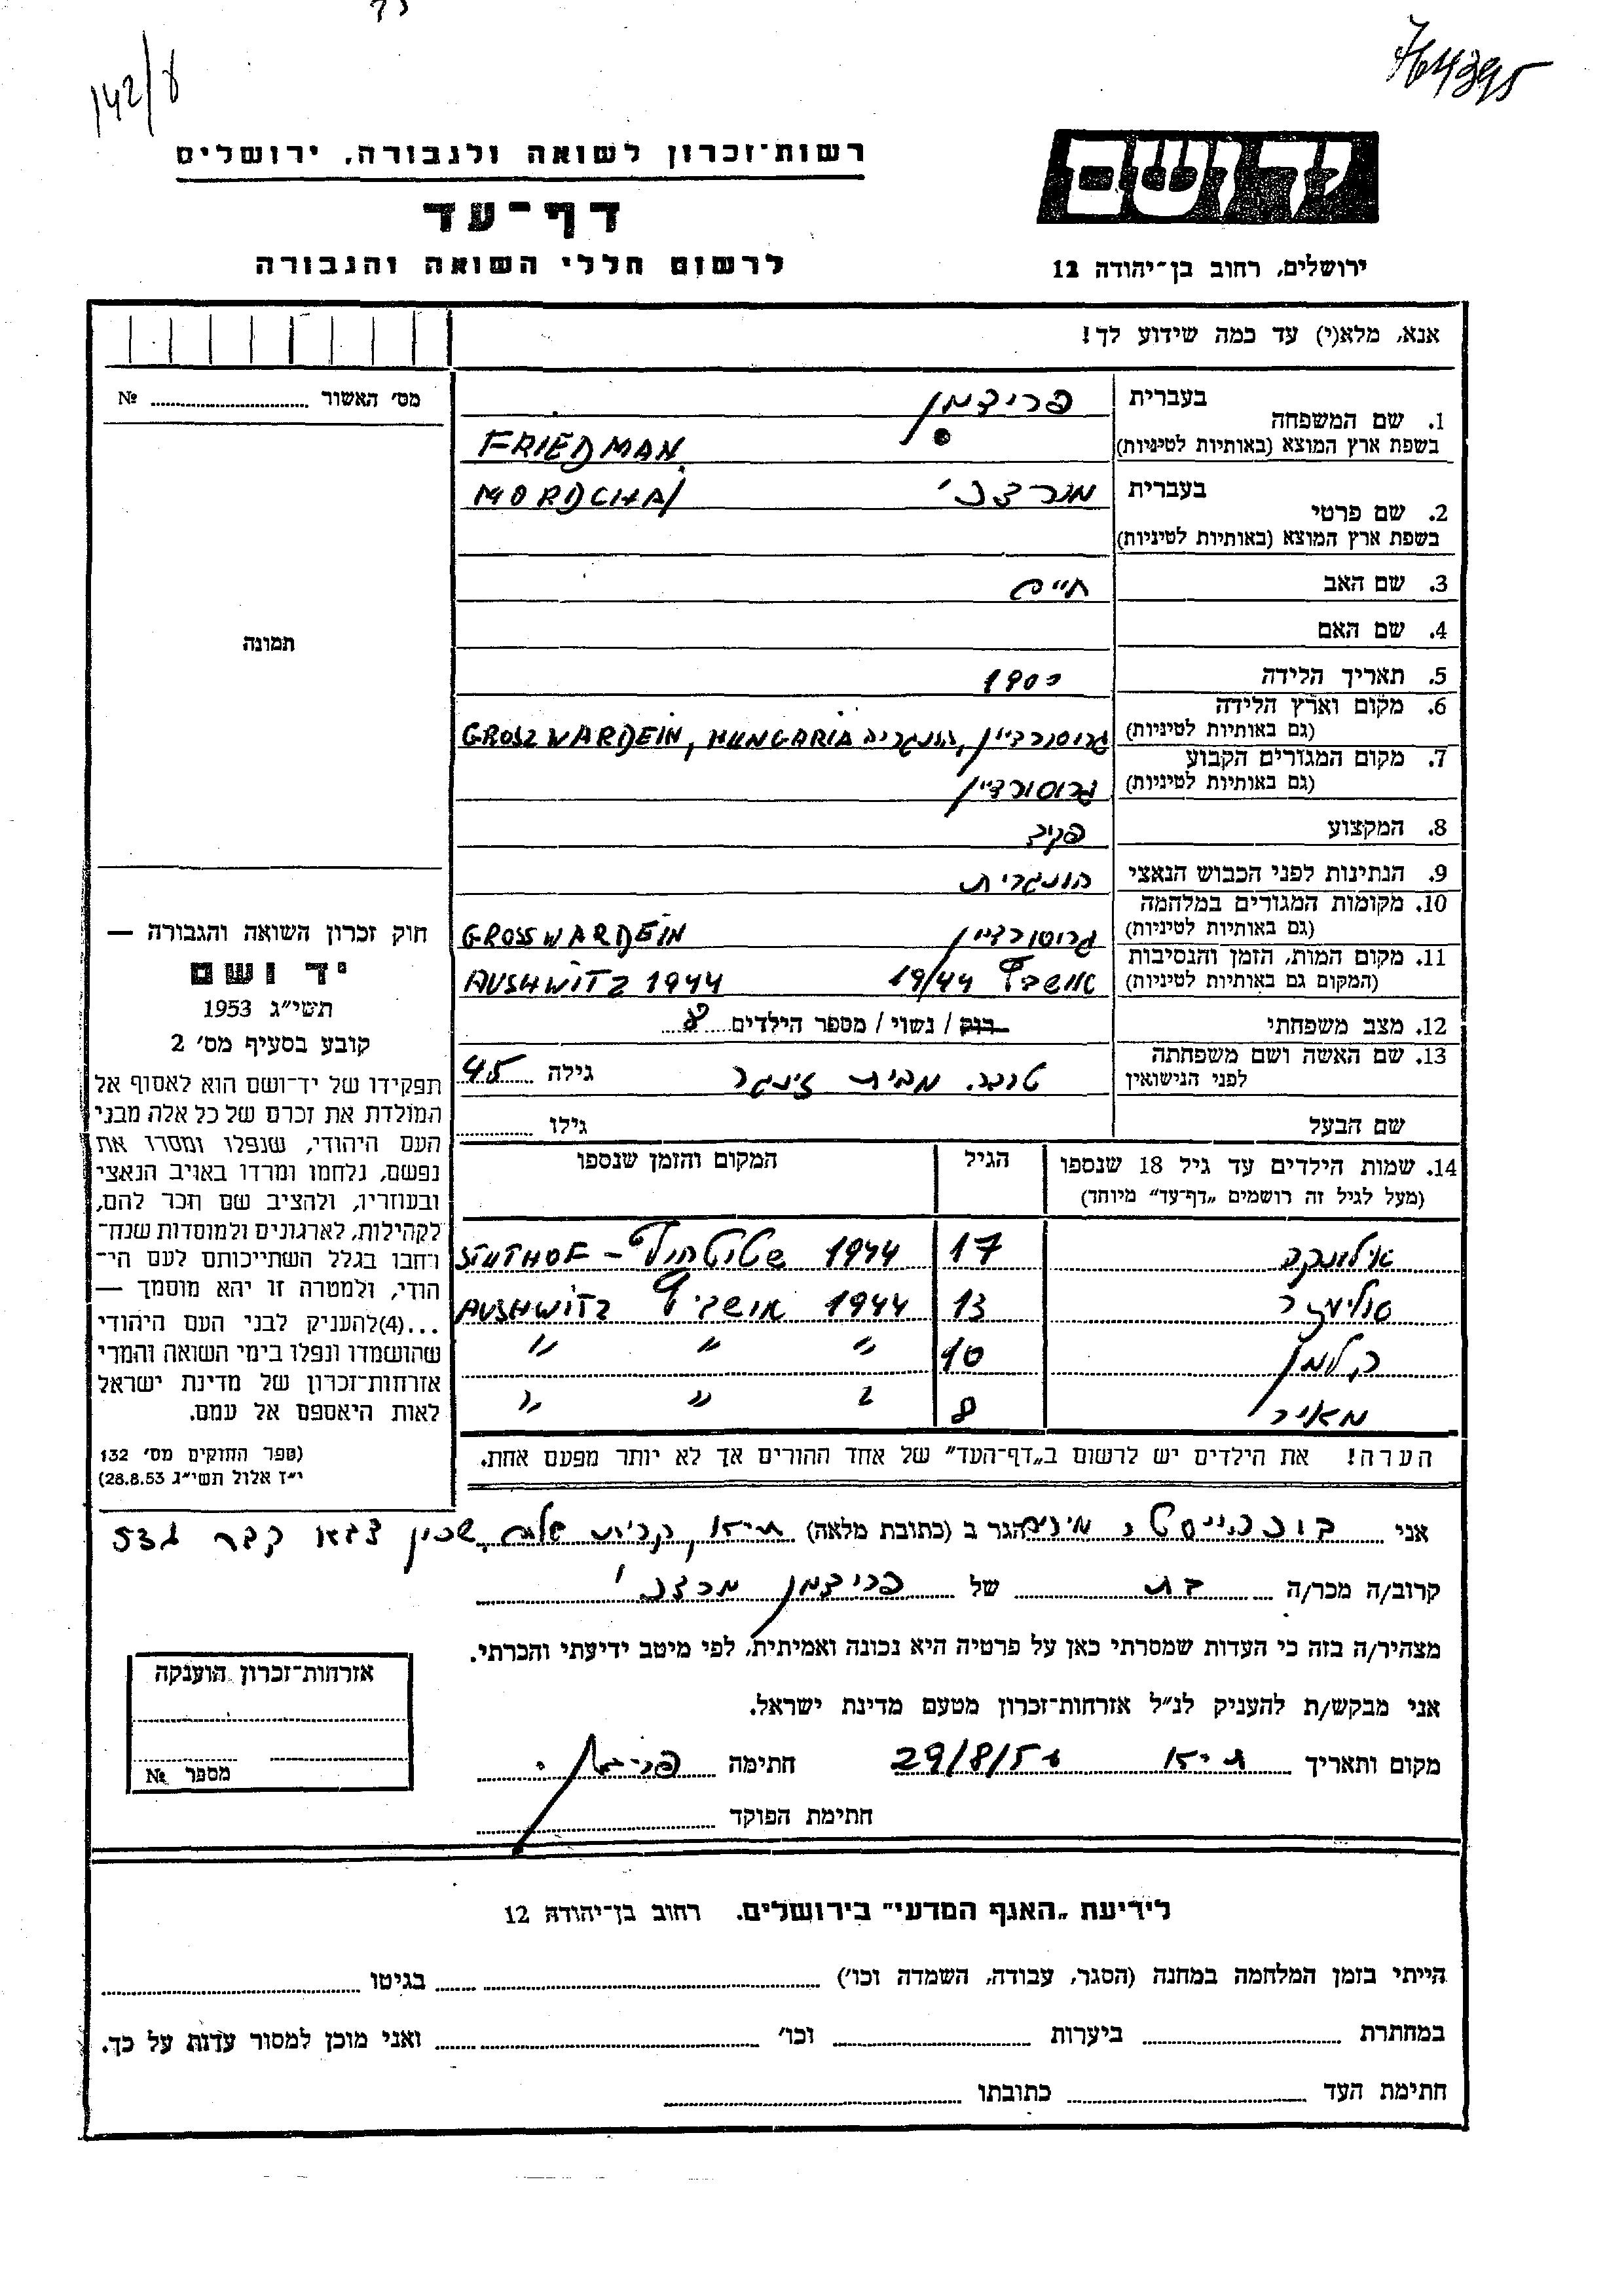 142/8
764395
יד ושם
רשות־זכרון לשואה ולגבורה, ירושלים
דף־עד
לרשום חללי השואה והגבורה
ירושלים, רחוב בן־יהודה 12
אנא, מלא(י) עד כמה שידוע לך!
מס׳ האשור ........ №
תמונה
1. שם המשפחה
בעברית פרידמן
בשפת ארץ המוצא (באותיות לטיניות) FRIEDMAN
2. שם פרטי
בעברית מורדכי MORDCHAI
בשפת ארץ המוצא (באותיות לטיניות)
3. שם האב חיים
4. שם האם
5. תאריך הלידה 1900
6. מקום וארץ הלידה
(גם באותיות לטיניות) גרוסורדיין, הונגריה GROSZWARDEIN, HUNGARIA
7. מקום המגורים הקבוע
(גם באותיות לטיניות) גרוסורדיין
8. המקצוע פקיד
9. הנתינות לפני הכבוש הנאצי הונגרית
10. מקומות המגורים במלחמה
(גם באותיות לטיניות) גרוסורדיין GROSSWARDEIN
11. מקום המות, הזמן והנסיבות
(המקום גם באותיות לטיניות) אושביץ 19/44 AUSHWITZ 1944
12. מצב משפחתי רוק / נשוי / מספר הילדים 8
13. שם האשה ושם משפחתה
לפני הנישואין טובה מבית זינגר גילה 45
שם הבעל גילו ........
14. שמות הילדים עד גיל 18 שנספו הגיל המקום והזמן שנספו
(מעל לגיל זה רושמים „דף־עד” מיוחד)
אילונקה 17 1944 שטוטהוף – STUTHOF
13 1944 אושביץ AUSHWITZ
קלמן 10 〃 〃 〃
מאיר 8 〃 〃 〃
הערה! את הילדים יש לרשום ב„דף־העד” של אחד ההורים אך לא יותר מפעם אחת.
חוק זכרון השואה והגבורה —
יד ושם
תשי״ג 1953
קובע בסעיף מס׳ 2
תפקידו של יד־ושם הוא לאסוף אל
המולדת את זכרם של כל אלה מבני
העם היהודי, שנפלו ומסרו את
נפשם, נלחמו ומרדו באויב הנאצי
ובעוזריו, ולהציב שם וזכר להם,
לקהילות, לארגונים ולמוסדות שנח־
רבו בגלל השתייכותם לעם הי־
הודי, ולמטרה זו יהא מוסמך —
...(4)להעניק לבני העם היהודי
שהושמדו ונפלו בימי השואה והמרי
אזרחות־זכרון של מדינת ישראל
לאות היאספם אל עמם.
(ספר החוקים מס׳ 132
י״ז אלול תשי״ג 28.8.53)
אני הגר ב (כתובת מלאה) קרית שלום, שכון
קרוב/ה מכר/ה בת של פרידמן מרדכי
מצהיר/ה בזה כי העדות שמסרתי כאן על פרטיה היא נכונה ואמיתית, לפי מיטב ידיעתי והכרתי.
אני מבקש/ת להעניק לנ״ל אזרחות־זכרון מטעם מדינת ישראל.
מקום ותאריך 29/8/56 חתימה
חתימת הפוקד
אזרחות־זכרון הוענקה
מספר №
לידיעת „האגף המדעי” בירושלים. רחוב בן־יהודה 12
הייתי בזמן המלחמה במחנה (הסגר, עבודה, השמדה וכו׳) ........ בגיטו ........
במחתרת ........ ביערות ........ וכו׳ ........ ואני מוכן למסור עדות על כך.
חתימת העד ........ כתובתו ........